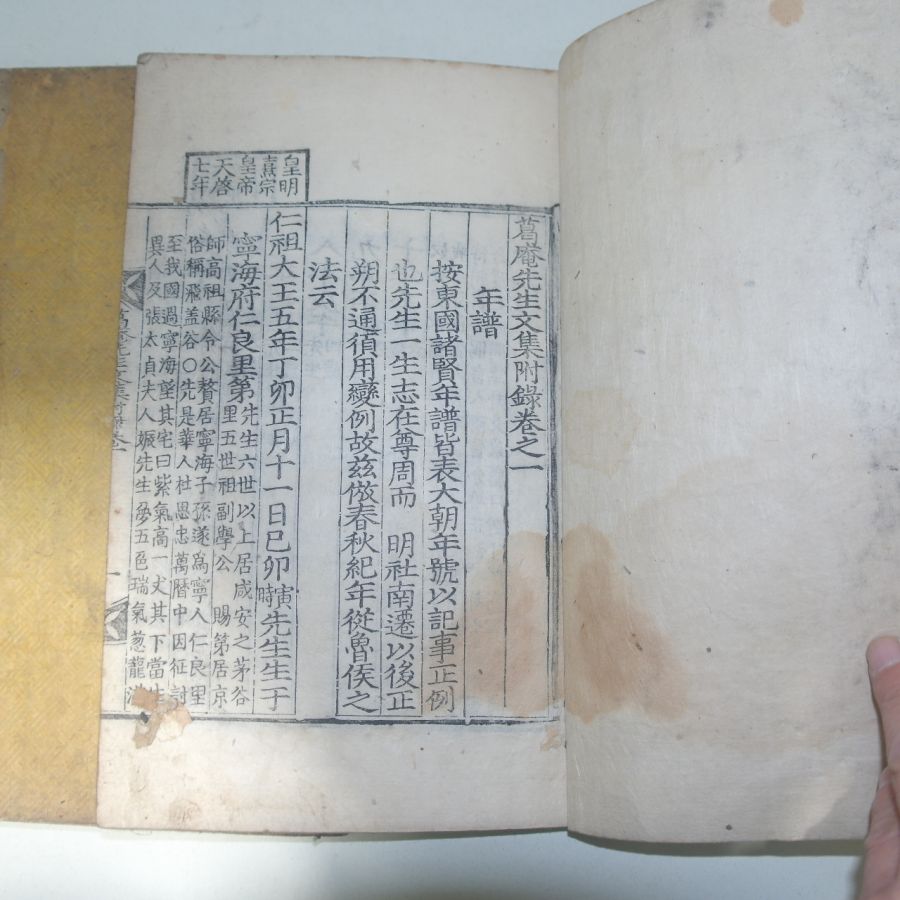 葛庵先生文集附錄卷之一
年譜
按東國諸賢年譜皆表大朝年號以記事正例
也先生一生志在尊周而 明社南遷以後正
朔不通須用變例故玆倣春秋紀年從魯侯之
法云
皇明
熹宗
皇帝
天啓
七年
仁祖大王五年丁卯正月十一日己卯寅時先生生于
寧海府仁良里第先生六世以上居咸安之茅谷
里五世祖副學公 賜第居京
師高祖縣令公贅居寧海子孫遂爲寧人仁良里
俗稱飛盖谷○先是華人杜思忠萬曆中因征討
至我國過寧海望其宅曰紫氣高一丈其下當生
異人及張太貞夫人娠先生夢五色瑞氣葱龍
葛庵先生文集附錄卷一
一